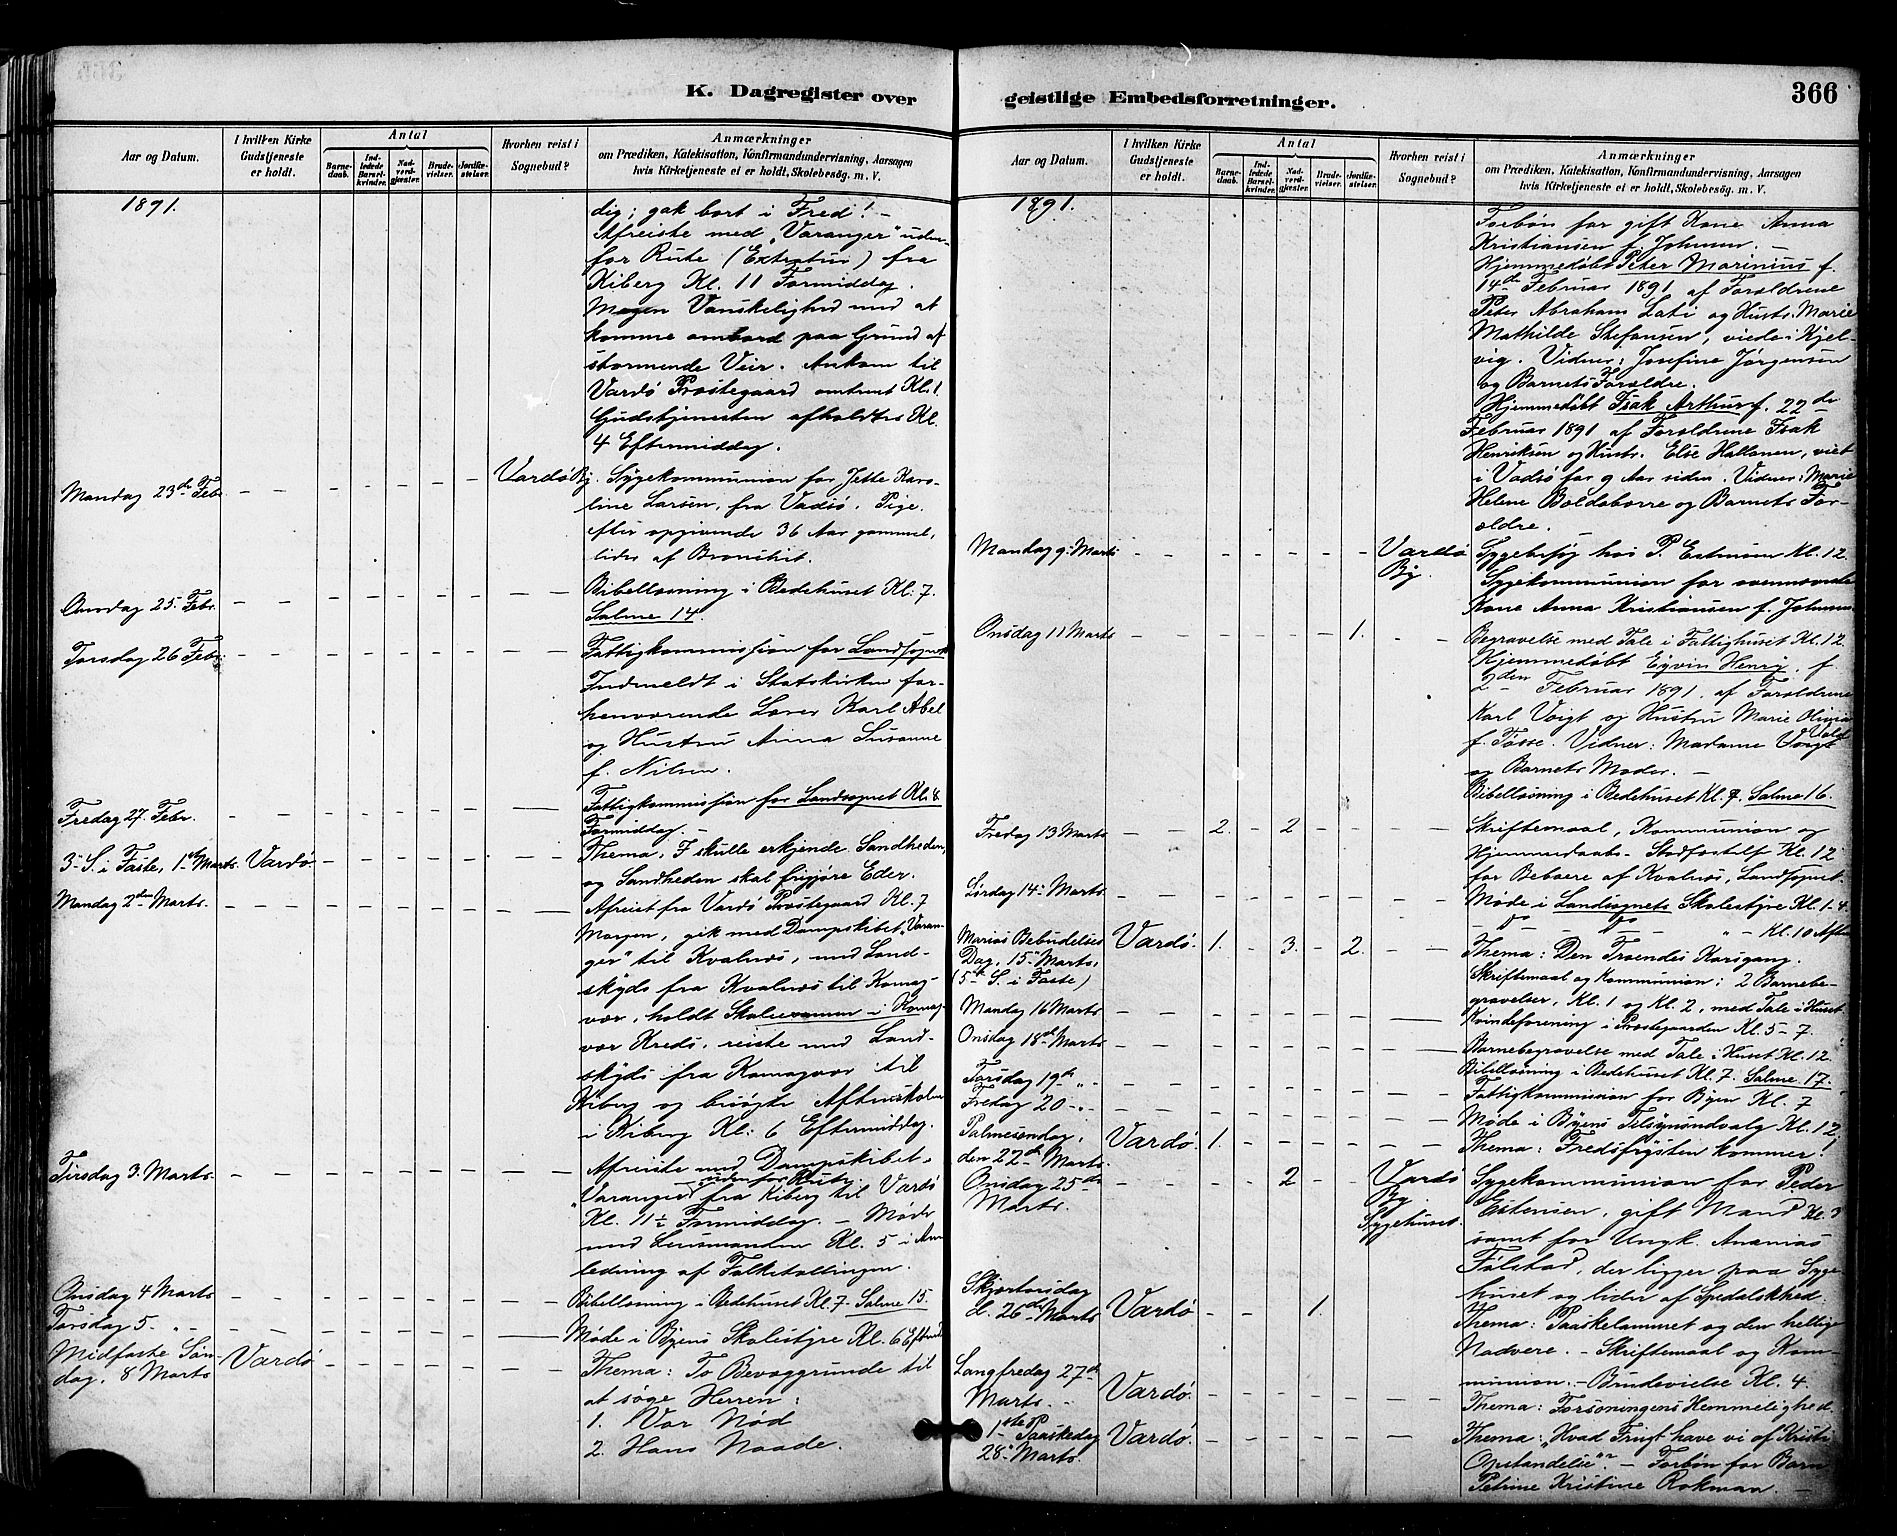 366
K. Dagregister over geistlige Embedsforretninger.
Aar og Datum.
I hvilken Kirke Gudstjeneste er holdt.
Antal
Barnedaab.
Indledede Barselkvinder.
Nadverdgjester.
Brudevielser.
Jordfæstelser.
Hvorhen reist i Sognebud?
Anmærkninger
om Prædiken, Katekisation, Konfirmandundervisning, Aarsagen
hvis Kirketjeneste ei er holdt, Skolebesög. m. V.
1891.
dig; gak bort i Fred! –
Afreiste med „Varanger" uden-
for Rute (Extratur) fra
Kiberg Kl. 11 Formiddag.
Megen Vanskelighed med at
komme ombord paa Grund af
stormende Veir. Ankom til
Vardö Præstegaard omtrent Kl. 1
Gudstjenesten afholdtes Kl.
4 Eftermiddag.
Mandag 23de Febr. – – – – – – – Vardö By. Sygekommunion for Jette Karo-
line Larsen, fra Vadsö, Pige,
efter opgivende 36 Aar gammel,
lider af Bronchit.
Onsdag 25. Febr. – – – – – – – – – Bibellæsning i Bedehuset Kl. 7
Salme 14.
Torsdag 26 Febr. – – – – – – – – – Fattigkommission for Landsognet
Indmeldt i Statskirken for-
henværende Lærer Karl Abel
og Hustru Anna Susanne
f. Nilsen.
Fredag 27. Febr. – – – – – – – – – Fattigkommission for Landsognet Kl. 8
Formiddag. –
3. S. i Faste, 1ste Marts. Vardö. – – – – – – – Thema. I skulle erkjende Sandheden,
og Sandheden skal frigjöre Eder.
Mandag 2den Marts. – – – – – – – – – Afreist fra Vardö Præstegaard Kl. 7
Morgen, gik med Dampskibet „Varan-
ger" til Kvalnes, med Land-
skyds fra Kvalnes til Komag-
vær, holdt Skoleexamen i Komag-
vær Kreds, reiste med Land-
skyds fra Komagvær til
Kiberg og besøgte Aftenskolen
i Kiberg Kl. 6 Eftermiddag.
Tirsdag 3. Marts. – – – – – – – – – Afreiste med Dampskibet
udenfor Rute
„Varanger" fra Kiberg til Vardö
Kl. 11½ Formiddag. – Møde
med Lensmanden Kl. 5 i An-
ledning af Folketællingen.
Onsdag 4 Marts – – – – – – – – – Bibellæsning i Bedehuset Kl. 7 Salme 15.
Torsdag 5 – „ – – – – – – – – – – Møde i Byens Skolestyre Kl. 6 Eftmd
Midfaste Søn-
dag, 8 Marts Vardö – – – – – – – Thema: To Bevæggrunde til
at søge Herren:
1. Vor Nød
2. Hans Naade.
Aar og Datum.
I hvilken Kirke Gudstjeneste er holdt.
Antal
Barnedaab.
Indledede Barselkvinder.
Nadverdgjester.
Brudevielser.
Jordfæstelser.
Hvorhen reist i Sognebud?
Anmærkninger
om Prædiken, Katekisation, Konfirmandundervisning, Aarsagen
hvis Kirketjeneste ei er holdt, Skolebesög. m. V.
1891.
Forbøn for gift Kone Anna
Kristiansen f. Johnsen. –
Hjemmedøbt Peter Marinius f.
14de Februar 1891 af Forældrene
Peter Abraham Lati og Hustr. Marie
Mathilde Stefansen, viede i Kjel-
vig. Vidner: Josefine Jørgensen
og Barnets Forældre.
Hjemmedøbt Isak Arthur f. 22de
Februar 1891 af Forældrene Isak
Henriksen og Hustr. Else Hallonen, viet
i Vadsö for 9 Aar siden. Vidner: Marie
Helene Boldaborre og Barnets For-
ældre.
Mandag 9. Marts – – – – – – – Vardö By. Sygebesøg hos P. Kl. 12.
Sygekommunion for ovennævnte
Kone Anna Kristiansen f. Johnsen
Onsdag 11 Marts – – – – – – 1. – – Begravelse med Tale i Fattighuset Kl. 12
Hjemmedøbt Eyvin Henry, f.
2den Februar 1891 af Forældrene
Karl Voigt og Hustru Marie Olivia
f. Tosse. Vidner: Madame Voigt
og Barnets Moder. –
Bibellæsning i Bedehuset Kl. 7. Salme 16.
Fredag 13 Marts – – 2. – 2 – – – – Skriftemaal, Kommunion og
Hjemmedaabs-Stadfæstelse Kl. 12
for Beboere af Kvalnes, Landsognet.
Lørdag 14. Marts. – – – – – – – – – Møde i Landsognets Skolestyre Kl. 1-4.
– do – do – „ – Kl. 10 Aften
Mariæ Bebudelses
Dag, 15. Marts,
(5te S. i Faste) Vardö. 1. – 3. – 2. – – Thema: Den Troendes Korsgang.
Skriftemaal og Kommunion: 2 Barnebe-
gravelser, Kl. 1 og Kl. 2, med Tale i Huset
Mandag 16 Marts. – – – – – – – – – Kvindeforening i Præstegaarden Kl. 5-7.
Onsdag 18de Marts – – – – – – – – – Barnebegravelse med Tale i Huset Kl. 12.
Bibellæsning i Bedehuset Kl. 7. Salme 17.
Torsdag 19de „ – – – – – – – – – Fattigkommission for Byen Kl. 7
Fredag 20 – „ – – – – – – – – – – Møde i Byens Tilsynsudvalg Kl. 12
Palmesøndag,
den 22de Marts. Vardö. 1. – – – – – – Thema: Fredsfyrsten kommer!
Onsdag 25de
Marts. – – – – 2 – – Vardö By Sygehuset. Sygekommunion for Peder
Estensen, gift Mand Kl. 3
samt for Ungk. Ananias
Følstad, der ligger paa Syge-
huset og lider af Spedalskhed.
Skjærtorsdag
d. 26de Marts Vardö – – – 1. – – – Thema: Paaskelammet og den hellige
Nadvere. – Skriftemaal og Kom-
munion. – Brudevielse Kl. 4.
Langfredag 27de
Marts. – Vardö. – – – – – – – Thema: Forsoningens Hemmelighed.
1ste Paaskedag
28. Marts. Vardö. – – – – – – – Thema: „Hvad Frugt have vi af Kristi
Opstandelse"? – Forbøn for Barn
Petrine Kristine Rokman. –